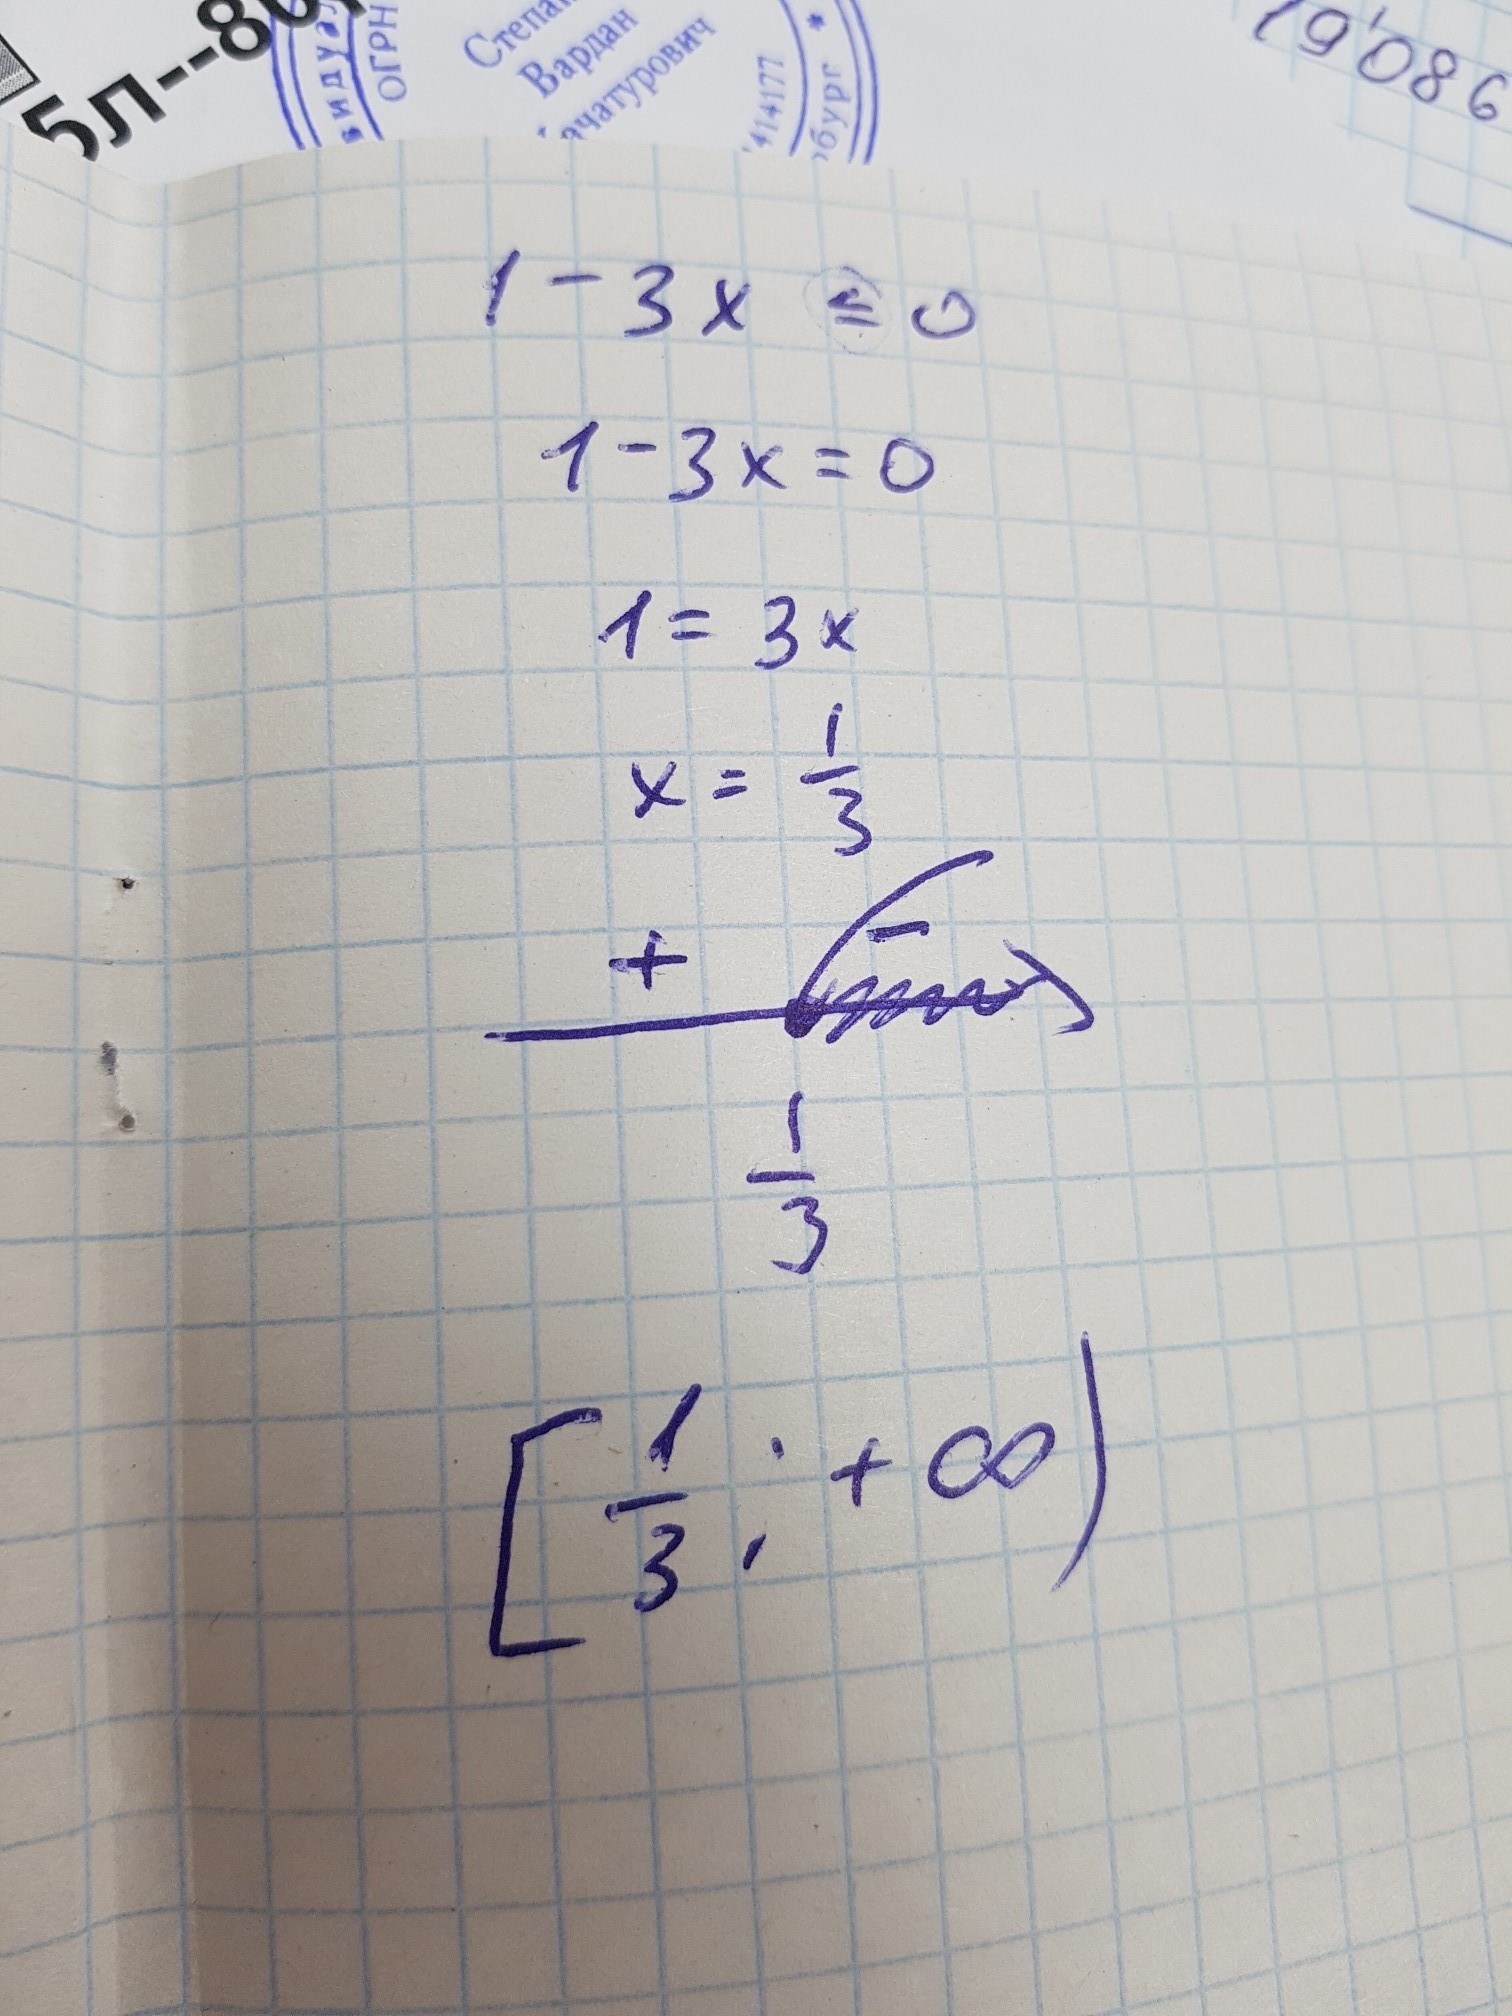 5л--80
видуал
ОГРН
Степан
Вардан
ачатурович
414177
бург *
1 - 3x ≤ 0
1 - 3x = 0
1 = 3x
x = 1/3
+ -
1/3
[1/3; +∞)